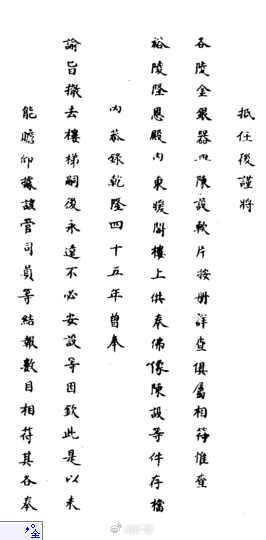 抵任後謹將
各陵金銀器皿陳設軟片按册詳查俱屬相符惟查
裕陵隆恩殿内東煖閣樓上供奉佛像陳設等件存檔
内恭錄乾隆四十五年曾奉
諭旨撤去樓梯嗣後永遠不必安設等因欽此是以未
能瞻仰據該管司員等結報數目相符其各奉
全